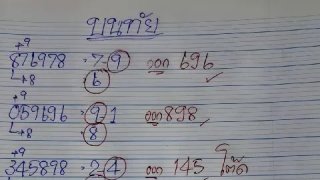 บนทัย
+9
876978 - 7 9 ออก 696
↳+8 6
+9
059696 - 9 1 ออก 898
↳+8 8
+9
345898 - 2 4 ออก 145 โต๊ด
↳+8